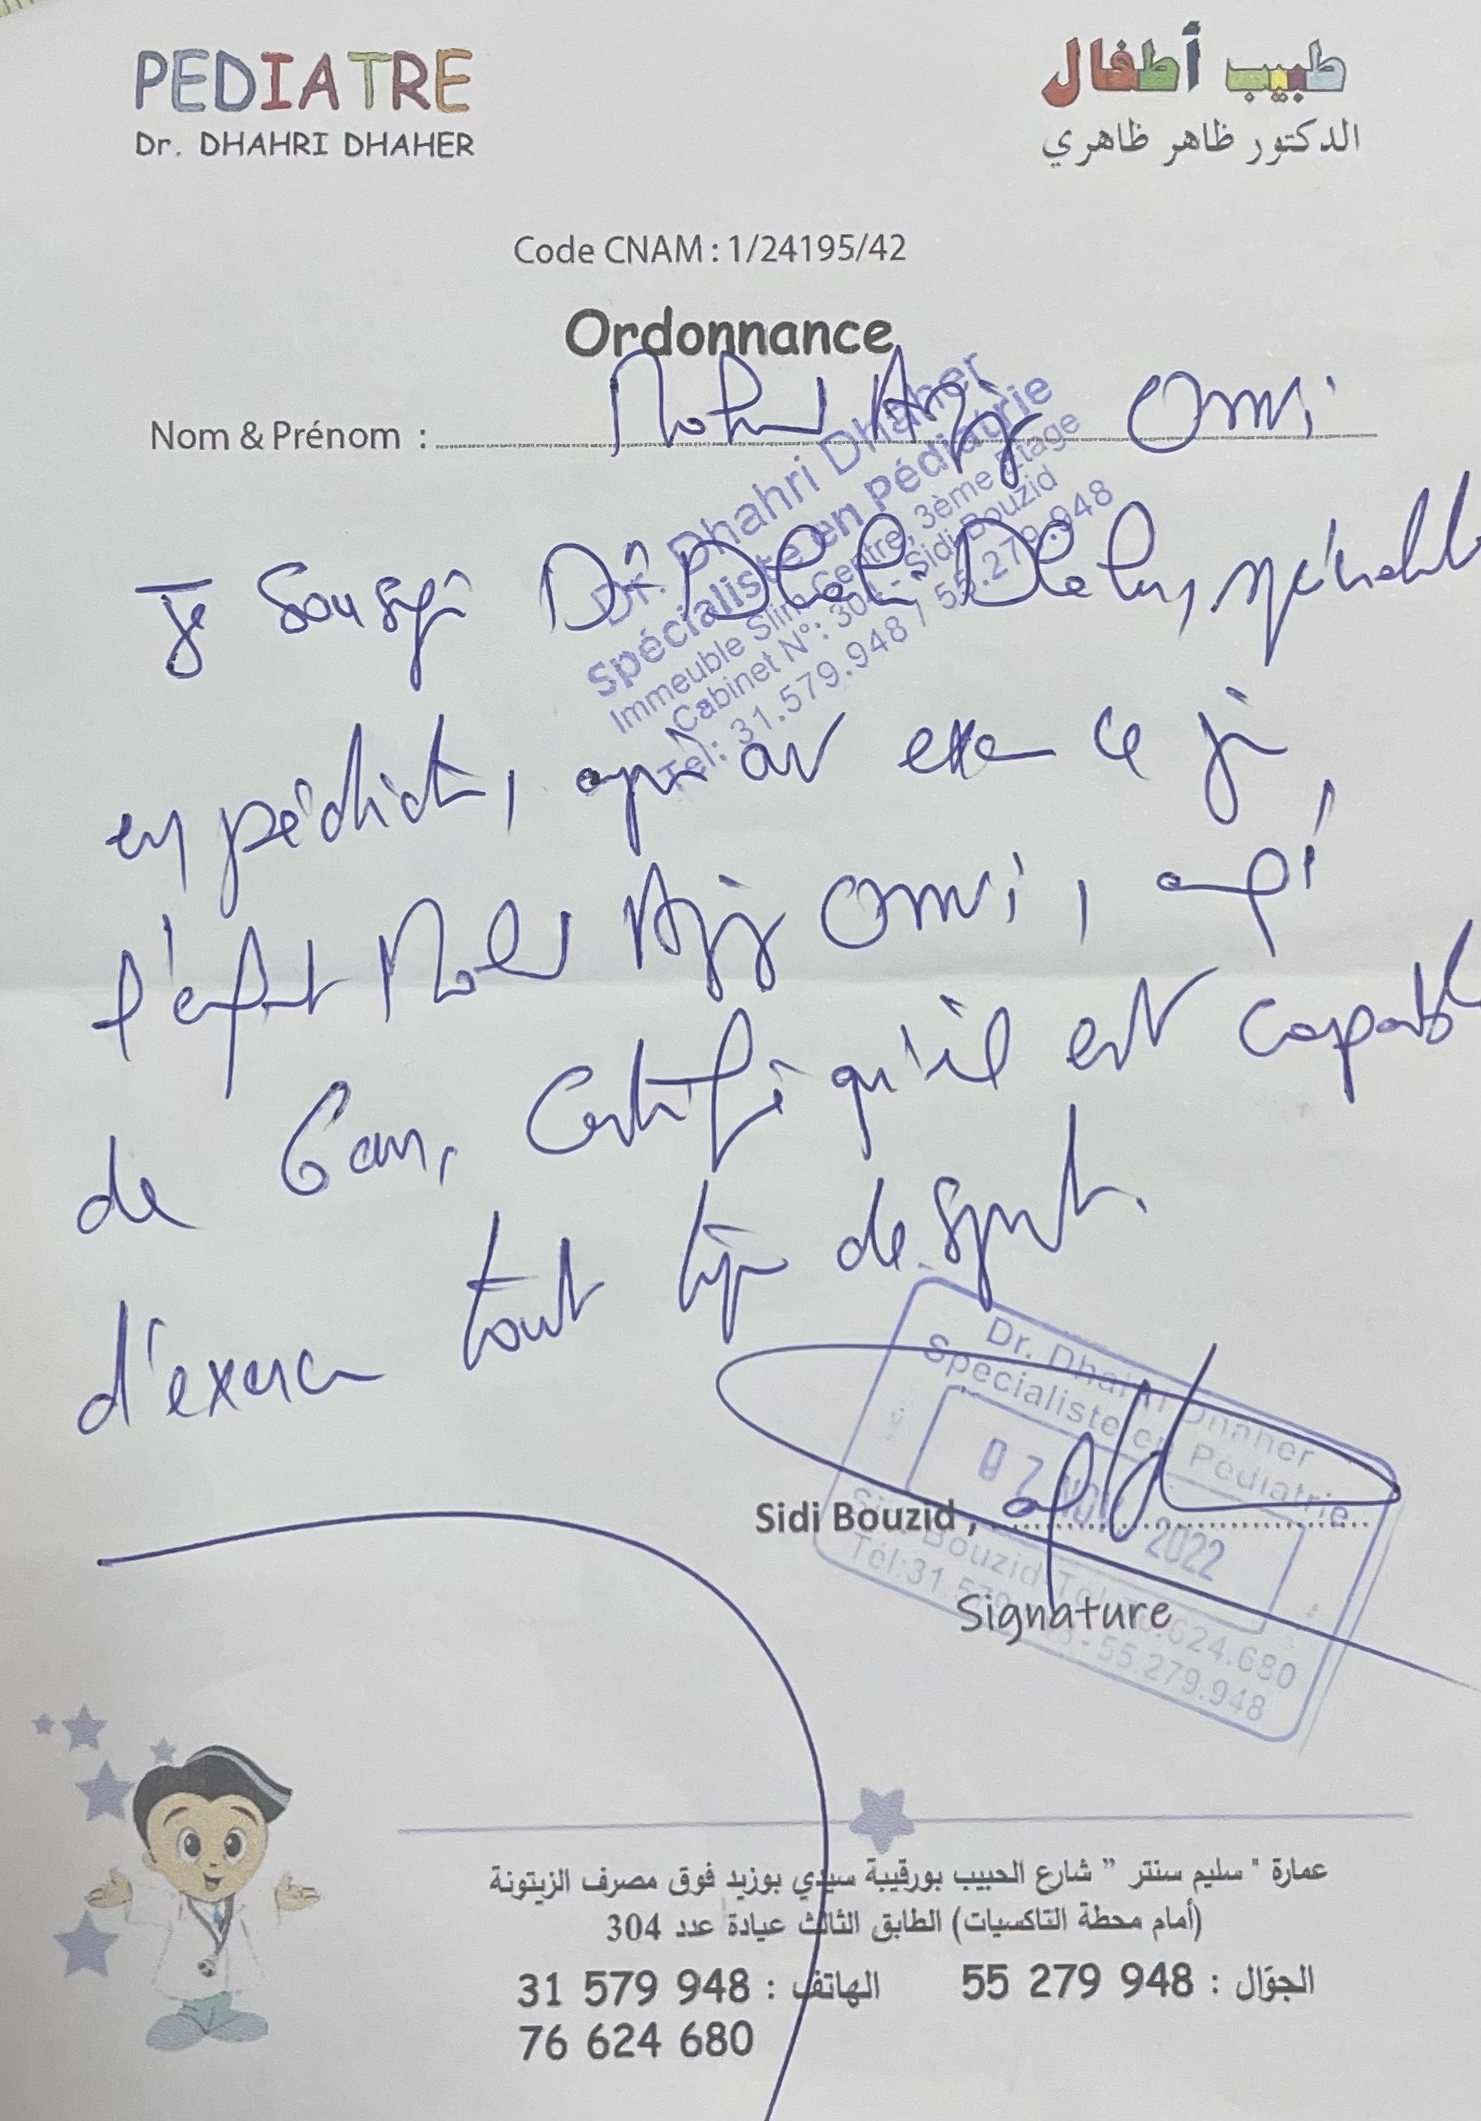 PEDIATRE
Dr. DHAHRI DHAHER
طبيب أطفال
الدكتور ظاهر ظاهري
Code CNAM : 1/24195/42
Ordonnance
Nom & Prénom : Mohamed Aziz Omri
Dr. Dhahri Dhaher
Spécialiste en Pédiatrie
Immeuble Slim Centre, 3ème Etage
Cabinet N°: 304 - Sidi Bouzid
Tél: 31.579.948 / 55.279.948
Je soussigné Dr Dhahri Dhaher, spécialiste
en pédiatrie, après avoir examiné ce jour,
l'enfant Mohamed Aziz Omri, âgé
de 6 ans, certifie qu'il est capable
d'exercer tout type de sport.
Dr. Dhahri Dhaher
Spécialiste en Pédiatrie
07 NOV 2022
Sidi Bouzid-Tél:76.624.680
Tél:31.579.948 - 55.279.948
Sidi Bouzid ,
Signature
عمارة " سليم سنتر " شارع الحبيب بورقيبة سيدي بوزيد فوق مصرف الزيتونة
(أمام محطة التاكسيات) الطابق الثالث عيادة عدد 304
الجوّال : 948 279 55 الهاتف : 948 579 31
76 624 680